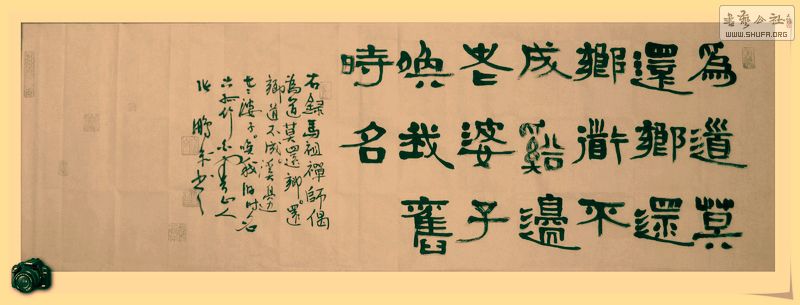 書藝公社
WWW.SHUFA.ORG
為道莫
還鄉還
鄉衜不
成谿邊
老婆子
喚我舊
時名
右錄馬祖禪師偈
為道莫還鄉。還
鄉道不成。溪邊
老婆子。喚我旧时名